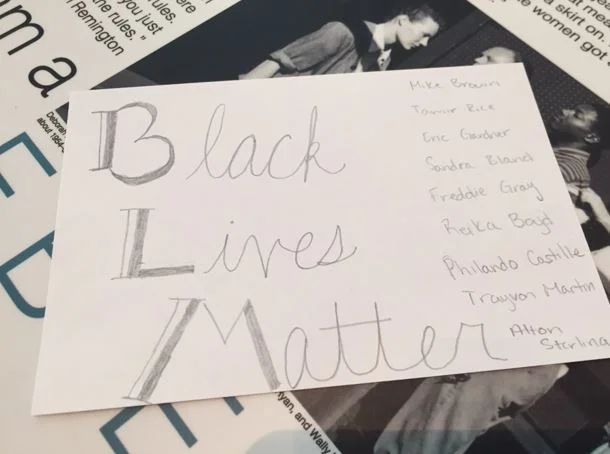 rules.
you just
he rules."
Remington
m a
skirt on.
women got
Black
Lives
Matter
Mike Brown
Tamir Rice
Eric Gardner
Sandra Bland
Freddie Gray
Reika Boyd
Philando Castille
Trayvon Martin
Alton
Sterling
and Wally